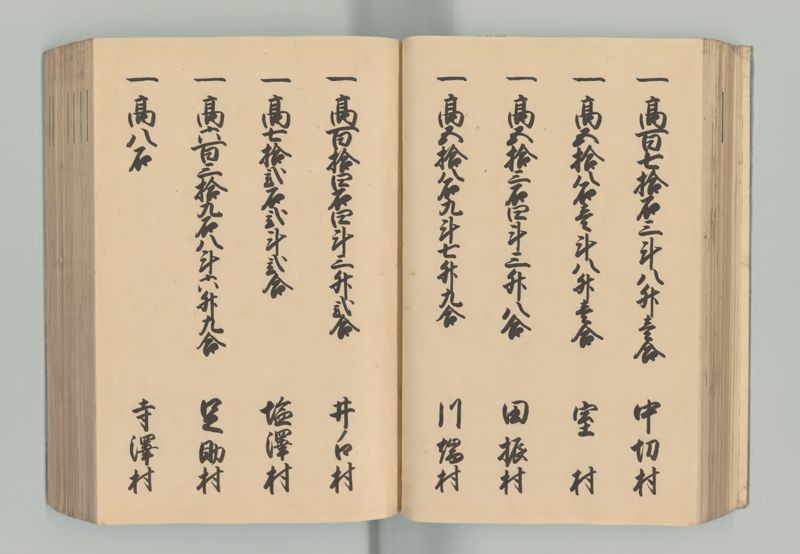 一 高百七拾石三斗八升壱合 中切村
一 高五拾八石壱斗八升壱合 室村
一 高五拾三石四斗三升八合 田振村
一 高五拾八石九斗七升九合 川端村
一 高百拾四石四斗三升弐合 井ノ口村
一 高七拾弐石弐斗弐合 塩澤村
一 高六百三拾九石八斗六升九合 足助村
一 高八石 寺澤村